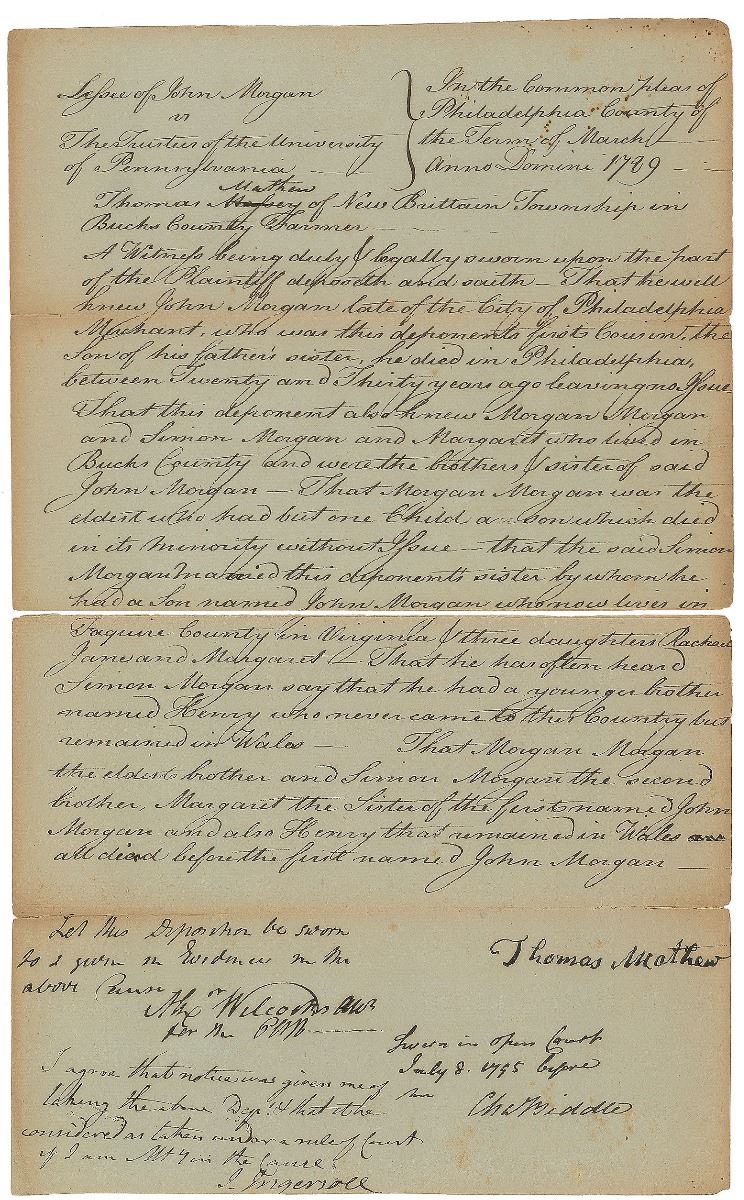 Lessee of John Morgan
vs
The Trustees of the University
of Pennsylvania
In the Common pleas of
Philadelphia County of
the Term of March
Anno Domini 1789
Mathew
Thomas Massey of New Brittain Township in
Bucks County Farmer
A Witness being duly & legally sworn upon the part
of the Plaintiff deposeth and saith – That he well
knew John Morgan late of the City of Philadelphia
Merchant, who was this deponents first Cousin, the
Son of his father's sister, he died in Philadelphia,
between Twenty and Thirty years ago leaving no Issue
That this deponent also knew Morgan Morgan
and Simon Morgan and Margaret who lived in
Bucks County and were the brothers & sister of said
John Morgan – That Morgan Morgan was the
eldest who had but one Child a son which died
in its minority without Issue – that the said Simon
Morgan married this deponents sister by whom he
had a Son named John Morgan who now lives in
Faquire County in Virginia & three daughters Rachael
Jane and Margaret – That he has often heard
Simon Morgan say that he had a younger brother
named Henry who never came to this Country but
remained in Wales – That Morgan Morgan
the eldest brother and Simon Morgan the second
brother, Margaret the Sister of the first named John
Morgan and also Henry that remained in Wales
all died before the first named John Morgan –
Let this Deposition be sworn
to & given in Evidence in the
above Cause
Alexr Wilcocks
for the
Thomas Mathew
Sworn in open Court
July 8. 1795 before
me
Cha Biddle
I agree that notice was given me of
taking the above Depn & that it be
considered as taken under a rule of Court
if I am Atty in the Cause
J. Ingersoll